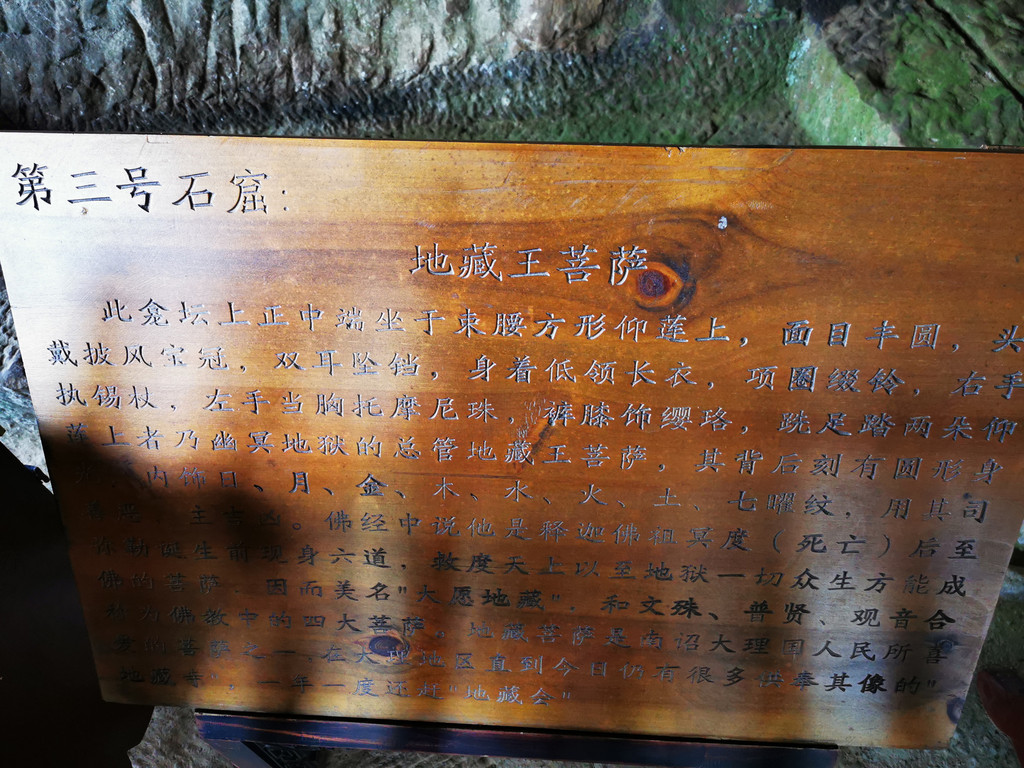 第三号石窟:
地藏王菩萨
此龛坛上正中端坐于束腰方形仰莲上，面目丰圆，头
戴披风宝冠，双耳坠铛，身着低领长衣，项圈缀铃，右手
执锡杖，左手当胸托摩尼珠，裤膝饰缨珞，跣足踏两朵仰
莲上者乃幽冥地狱的总管地藏王菩萨，其背后刻有圆形身
内饰日、月、金、木、水、火、土、七曜纹，用其司
主吉凶。佛经中说他是释迦佛祖冥度(死亡)后至
弥勒诞生前现身六道，救度天上以至地狱一切众生方能成
佛的菩萨，因而美名"大愿地藏"，和文殊、普贤、观音合
称为佛教中的四大菩萨。地藏菩萨是南诏大理国人民所喜
爱的菩萨之一、在大理地区直到今日仍有很多供奉其像的"
地藏寺"，一年一度还赶"地藏会"